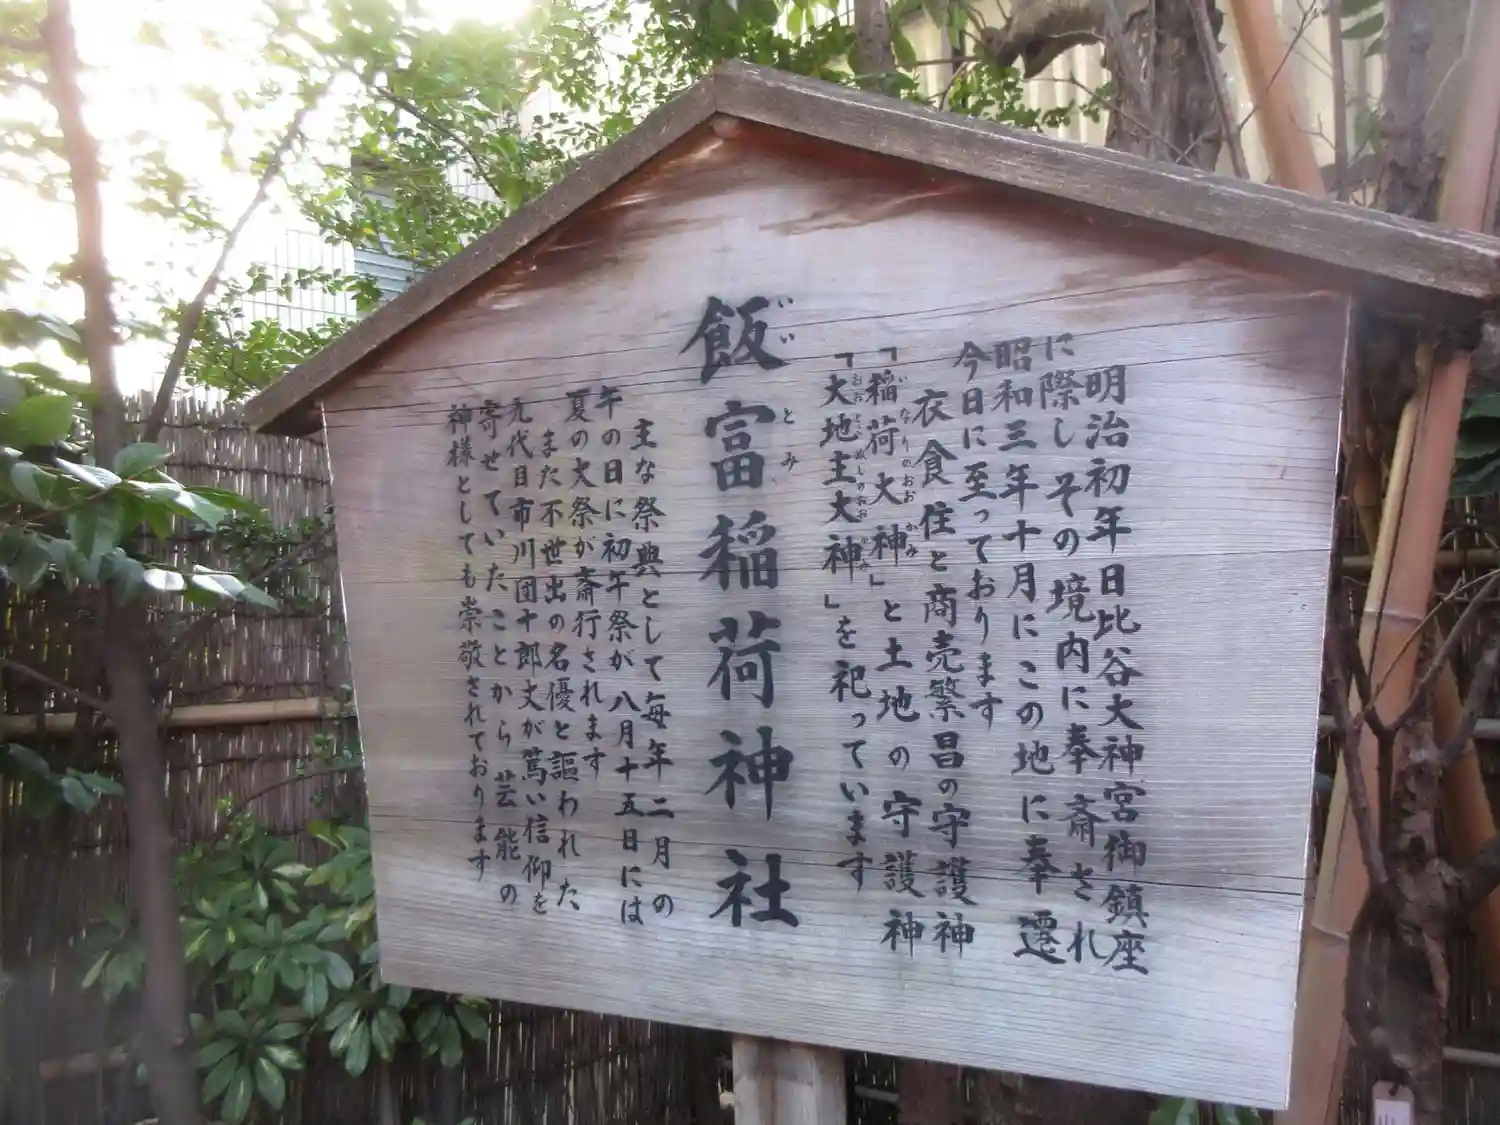 明治初年日比谷大神宮御鎮座
に際し その境内に奉斎され
昭和三年十月にこの地に奉遷
今日に至っております
衣食住と商売繁昌の守護神
「稲荷大神」と土地の守護神
いなりのおおかみ
「大地主大神」を祀っています
おおとこぬしのおおかみ
飯富稲荷神社
いいとみ
主な祭典として毎年二月の
午の日に初午祭が八月十五日には
夏の大祭が斎行されます
また不世出の名優と謳われた
九代目市川団十郎丈が篤い信仰を
寄せていたことから芸能の
神様としても崇敬されております